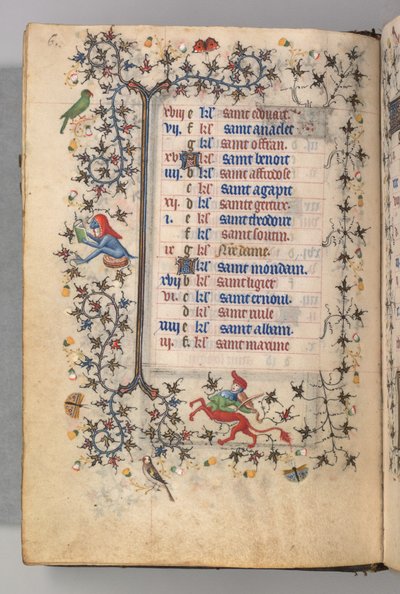 6.
xviii e kl' saint edouart.
vii. f kl' saint anaclet
g kl' saint offran.
xv A kl' saint benoit
iiii. b kl' saint affrodose
c kl' saint agapit
xii. d kl' saint
i. e kl' saint theodore
f kl' saint
ix g kl' Nre dame.
A kl' saint mondain.
xvii b kl' saint ligier
vi. c kl' saint ernoul.
d kl' saint
xiiii e kl' saint albain.
iii. f kl' saint maxime